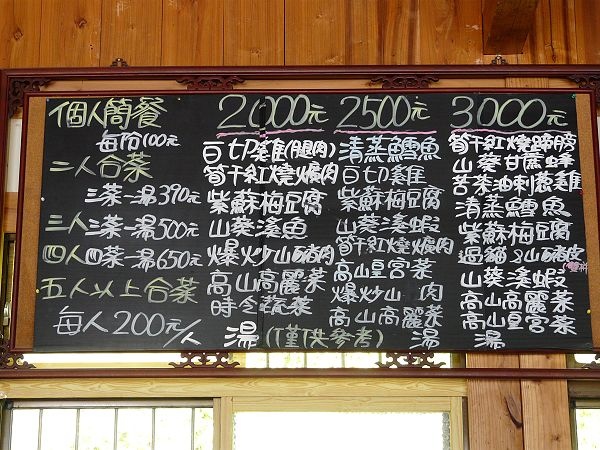 個人簡餐
每份100元
二人合菜
三菜一湯390元
三人三菜一湯500元
四人四菜一湯650元
五人以上合菜
每人200元/人
2000元
白切雞(腿肉)
筍干紅燒爌肉
紫蘇梅豆腐
山葵淺魚
爆炒山豬肉
高山高麗菜
時令蔬菜
湯(僅供參考)
2500元
清蒸鱈魚
白切雞
紫蘇梅豆腐
山葵淺蝦
筍干紅燒爌肉
高山皇宮菜
爆炒山 肉
高山高麗菜
湯
3000元
筍干紅燒蹄膀
山葵甘蔗蜂
苦茶油刺蔥雞
清蒸鱈魚
紫蘇梅豆腐
過貓&山豬皮
山葵淺蝦
高山高麗菜
高山皇宮菜
湯